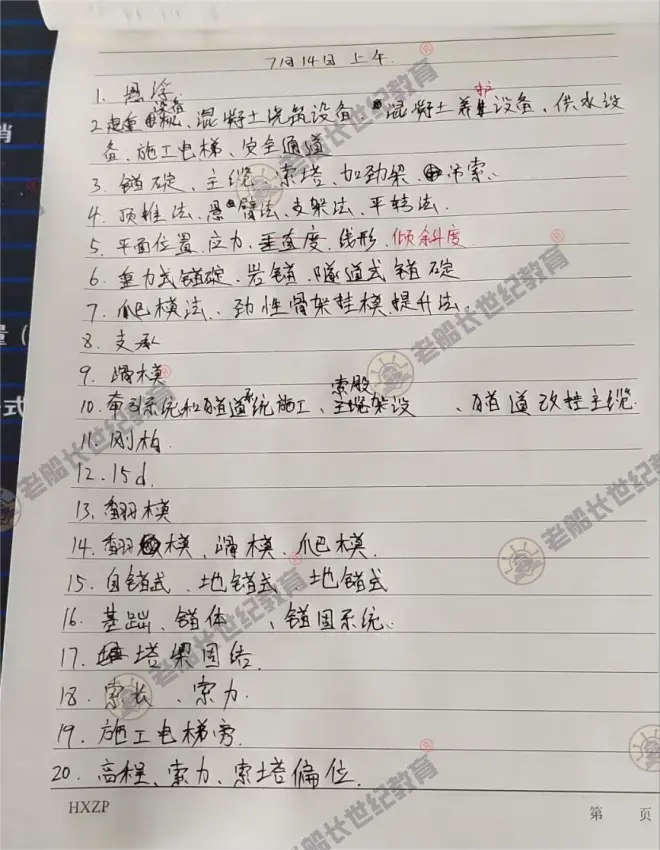 7月14日 上午.
1. 悬浮.
2. 起重设备、混凝土浇筑设备、混凝土养护设备、供水设
备、施工电梯、安全通道
3. 锚碇、主缆、索塔、加劲梁、吊索.
4. 顶推法、悬臂法、支架法、平转法.
5. 平面位置、应力、垂直度、线形、倾斜度
6. 重力式锚碇、岩锚、隧道式锚碇
7. 爬模法、劲性骨架挂模提升法.
8. 支承
9. 滑模
10. 牵引系统和猫道系统施工、索股架设、猫道改挂主缆.
11. 刚构.
12. 15d.
13. 翻模
14. 翻模、滑模、爬模.
15. 自锚式、地锚式、地锚式
16. 基础、锚体、锚固系统.
17. 塔梁固结.
18. 索长、索力.
19. 施工电梯旁.
20. 高程、索力、索塔偏位.
HXZP
第 页
老船长世纪教育
老船长世纪教育
老船长世纪教育
老船长世纪教育
老船长世纪教育
老船长世纪教育